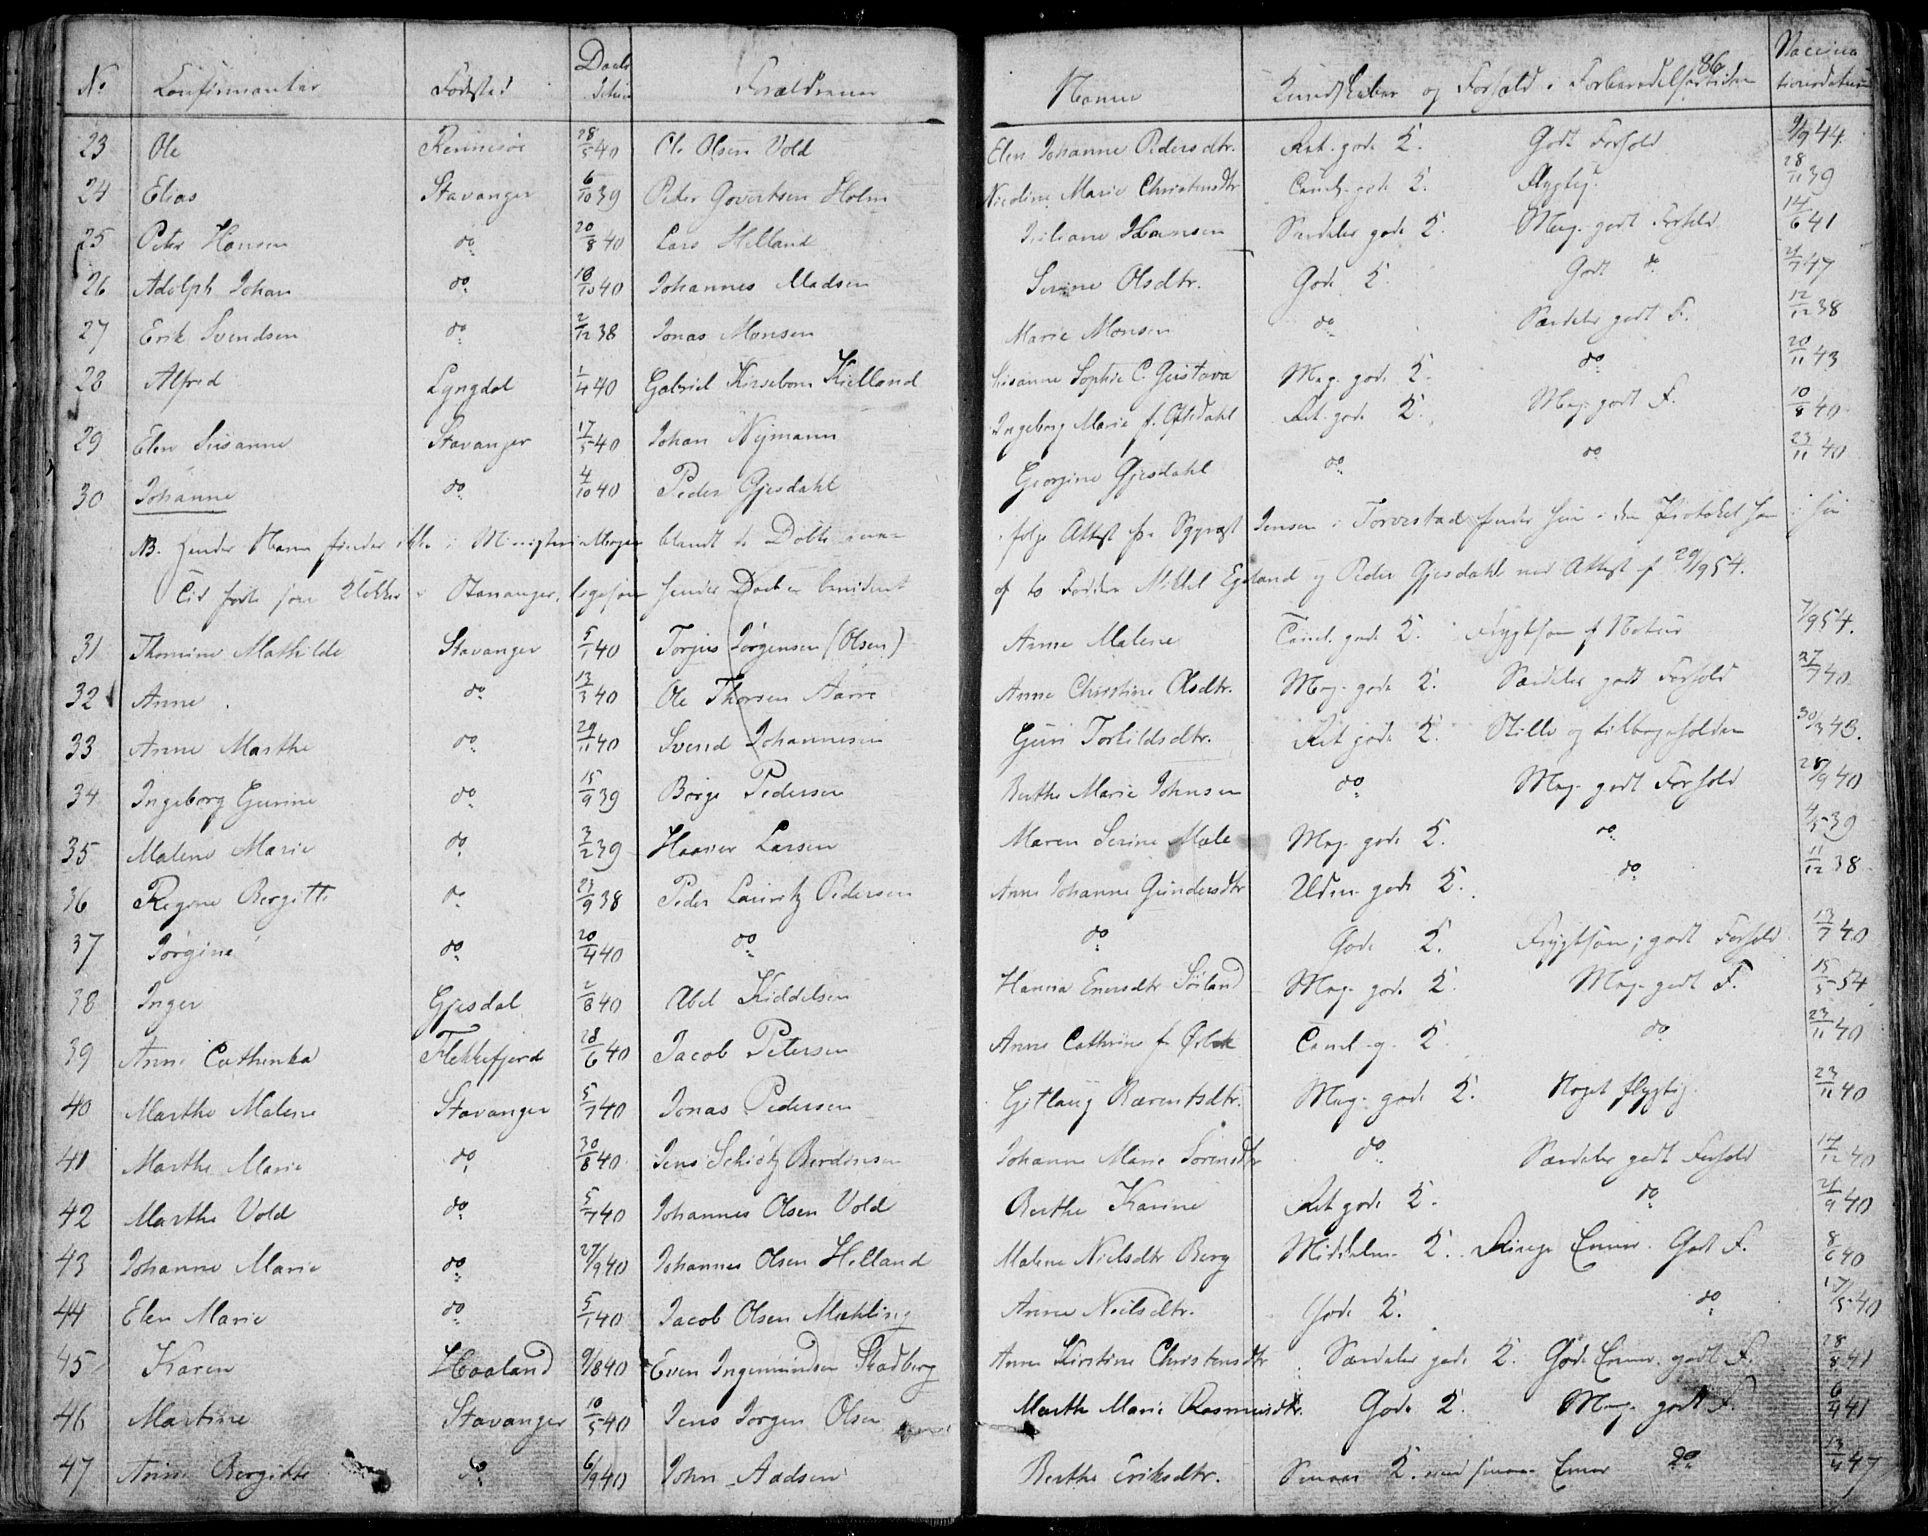 86
No Confirmanter Fødested Daab Datum Forældrenes Navne Kundskaber og Forhold i Forberedelsestiden Vaccinationsdatum
23 Ole Rennesøe 28/5 40 Ole Olsen Vold Elen Johanne Pedersdtr. Ret gode K. Godt Forhold 9/9 44.
24 Elias Stavanger 6/10 39 Peder Govertsen Holm Nicoline Marie Christensdtr Teml. gode K. Flygtig. 28/11 39
25 Peter Hansen do 20/8 40 Lars Helland Juliane Hansen Særdeles gode K. Meg. godt Forhold 14/6 41
26 Adolph Johan do 18/10 40 Johannes Madsen Serine Olsdtr. Gode K. Godt do 2/7 47
27 Erik Svendsen do 2/12 38 Jonas Monsen Marie Monsen do Særdeles godt F. 12/12 38
28 Alfred Lyngdal 1/4 40 Gabriel Kirsebom Kielland Susanne Sophie C. Gustava Meg. gode K. do 20/11 43
29 Elen Susanne Stavanger 17/5 40 Johan Nymann Ingeborg Marie f. Opsdahl Ret gode K. Meg. godt F. 10/8 40
30 Johanne do 4/10 40 Peder Gjesdahl Georgine Gjesdahl do do 23/11 40
NB. Hendes Navn findes ikke i Ministerialbogen blandt de Døbte, men ifølge Attest fra Sogneprest Jensen i Torvestad findes hun i den Protokol han i sin
Tid førte som Klokker i Stavanger, ligesom hendes Daab er bevidnet af to Faddere Mikkel Egeland og Peder Gjesdahl ved Attest af 29/9 54.
31 Thomine Mathilde Stavanger 5/1 40 Torjus Jørgensen (Olsen) Anne Malene Teml. gode K. Frygtsom af Natur 7/9 54.
32 Anne do 13/3 40 Ole Thorsen Aarre Anne Christine Olsdtr. Meg. gode K. Særdeles godt Forhold 27/7 40
33 Anne Marthe do 29/11 40 Svend Johannesen Guri Torkildsdtr. Ret gode K. Stille og tilbageholden 30/3 43.
34 Ingeborg Gurine do 15/9 39 Børge Pedersen Berthe Marie Johnsen do Meg. godt Forhold 28/9 40
35 Malene Marie do 3/2 39 Haaver Larsen Maren Serine Male Meg. gode K. do 4/5 39
36 Regine Bergitte do 23/9 38 Peder Lauritz Pedersen Anne Johanne Gundersdtr Udm. gode K. do 11/12 38
37 Jørgine do 20/4 40 do do Gode K. Frygtsom; godt Forhold 13/7 40
38 Inger Gjesdal 2/8 40 Abel Kiddelsen Hanna Enersdtr Søiland Meg. gode K. Meg. godt F. 15/5 54
39 Anne Cathinka Flekkefjord 28/6 40 Jacob Petersen Anne Cathrine f. Teml. g. K. do 23/11 40
40 Marthe Malene Stavanger 5/7 40 Jonas Pedersen Gitlaug Barentsdtr. Meg. gode K. Noget flygtig. 23/11 40
41 Marthe Marie do 30/8 40 Jens Schiøtz Berdinsen Johanne Marie Sørensdtr do Særdeles godt Forhold 14/12 40
42 Marthe Vold do 5/7 40 Johannes Olsen Vold Berthe Karine Ret gode K. do 21/9 40
43 Johanne Marie do 27/9 40 Johannes Olsen Helland Malene Nielsdtr Berg Middelm. K. Ringe Evner. Godt F. 8/6 40
44 Elen Marie do 5/1 40 Jacob Olsen Mæhling Anne Neilsdtr. Gode K. do 17/5 40
45 Karen Haaland 9/8 40 Even Ingemundsen Skadberg Anne Kirstine Christensdtr Særdeles gode K. Gode Evner. godt F. 28/8 41
46 Martine Stavanger 10/5 40 Jens Jørgen Olsen Marthe Marie Rasmusdtr. Gode K. Meg. godt F. 6/4 41
47 Anne Bergitte do 6/9 40 John Aadsen Berthe Eriksdtr. Smaae K. med smaae Evner do 13/4 47